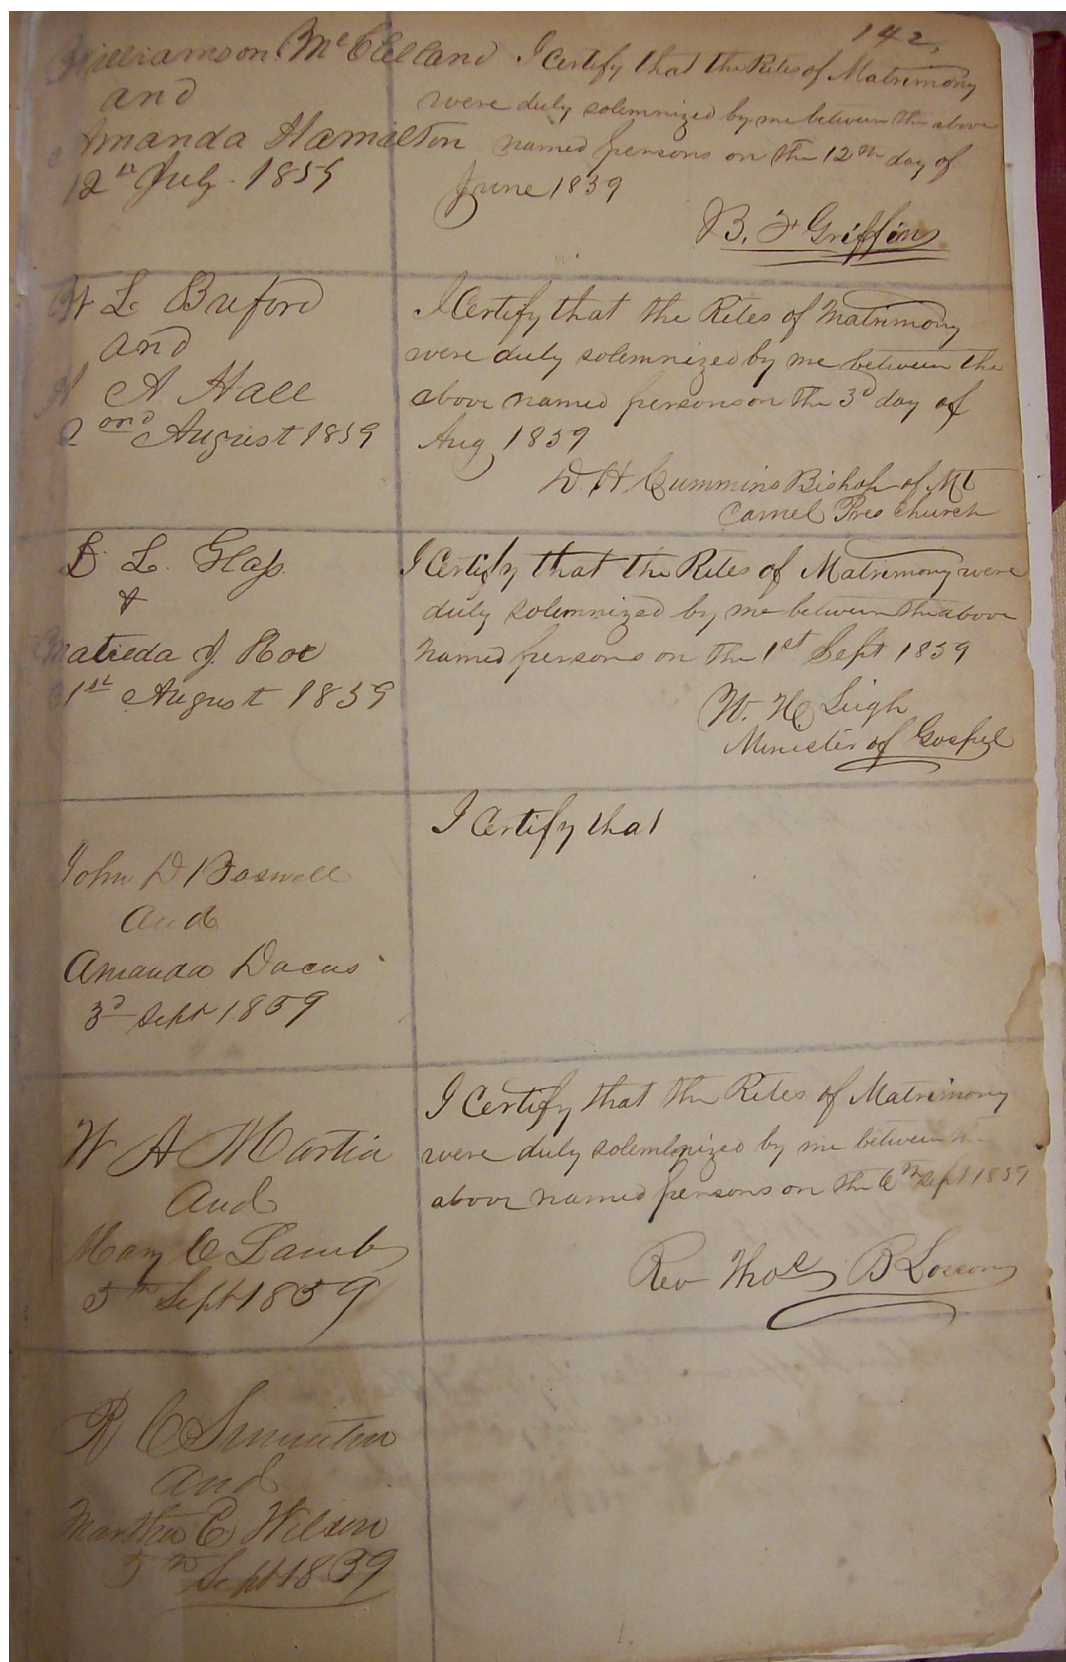 142,
Williamson McClelland
and
Amanda Hamilton
12th July. 1859
I Certify that the Rites of Matrimony
were duly solemnized by me between the above
named persons on the 12th day of
June 1859
B. F Griffin
W L Buford
and
A Hall
2ond August 1859
I Certify that the Rites of Matrimony
were duly solemnized by me between the
above named persons on the 3d day of
Aug 1859
D. H Cummins Bishop of Mt
Carmel Pres Church
L. Glass
&
Matilda J. Roe
31st August 1859
I Certify that the Rites of Matrimony were
duly solemnized by me between the above
named persons on the 1st Sept 1859
W. H. Leigh
Minister of Gospel
John D Boswell
and
Amanda Dacus
3d Sept 1859
I Certify that
W A Martin
and
Mary C Lamb
5th Sept 1859
I Certify that the Rites of Matrimony
were duly solemnized by me between the
above named persons on the 6th Sept 1859
Rev Thos B
R C Simonton
and
Martha E Wilson
5th Sept 1859